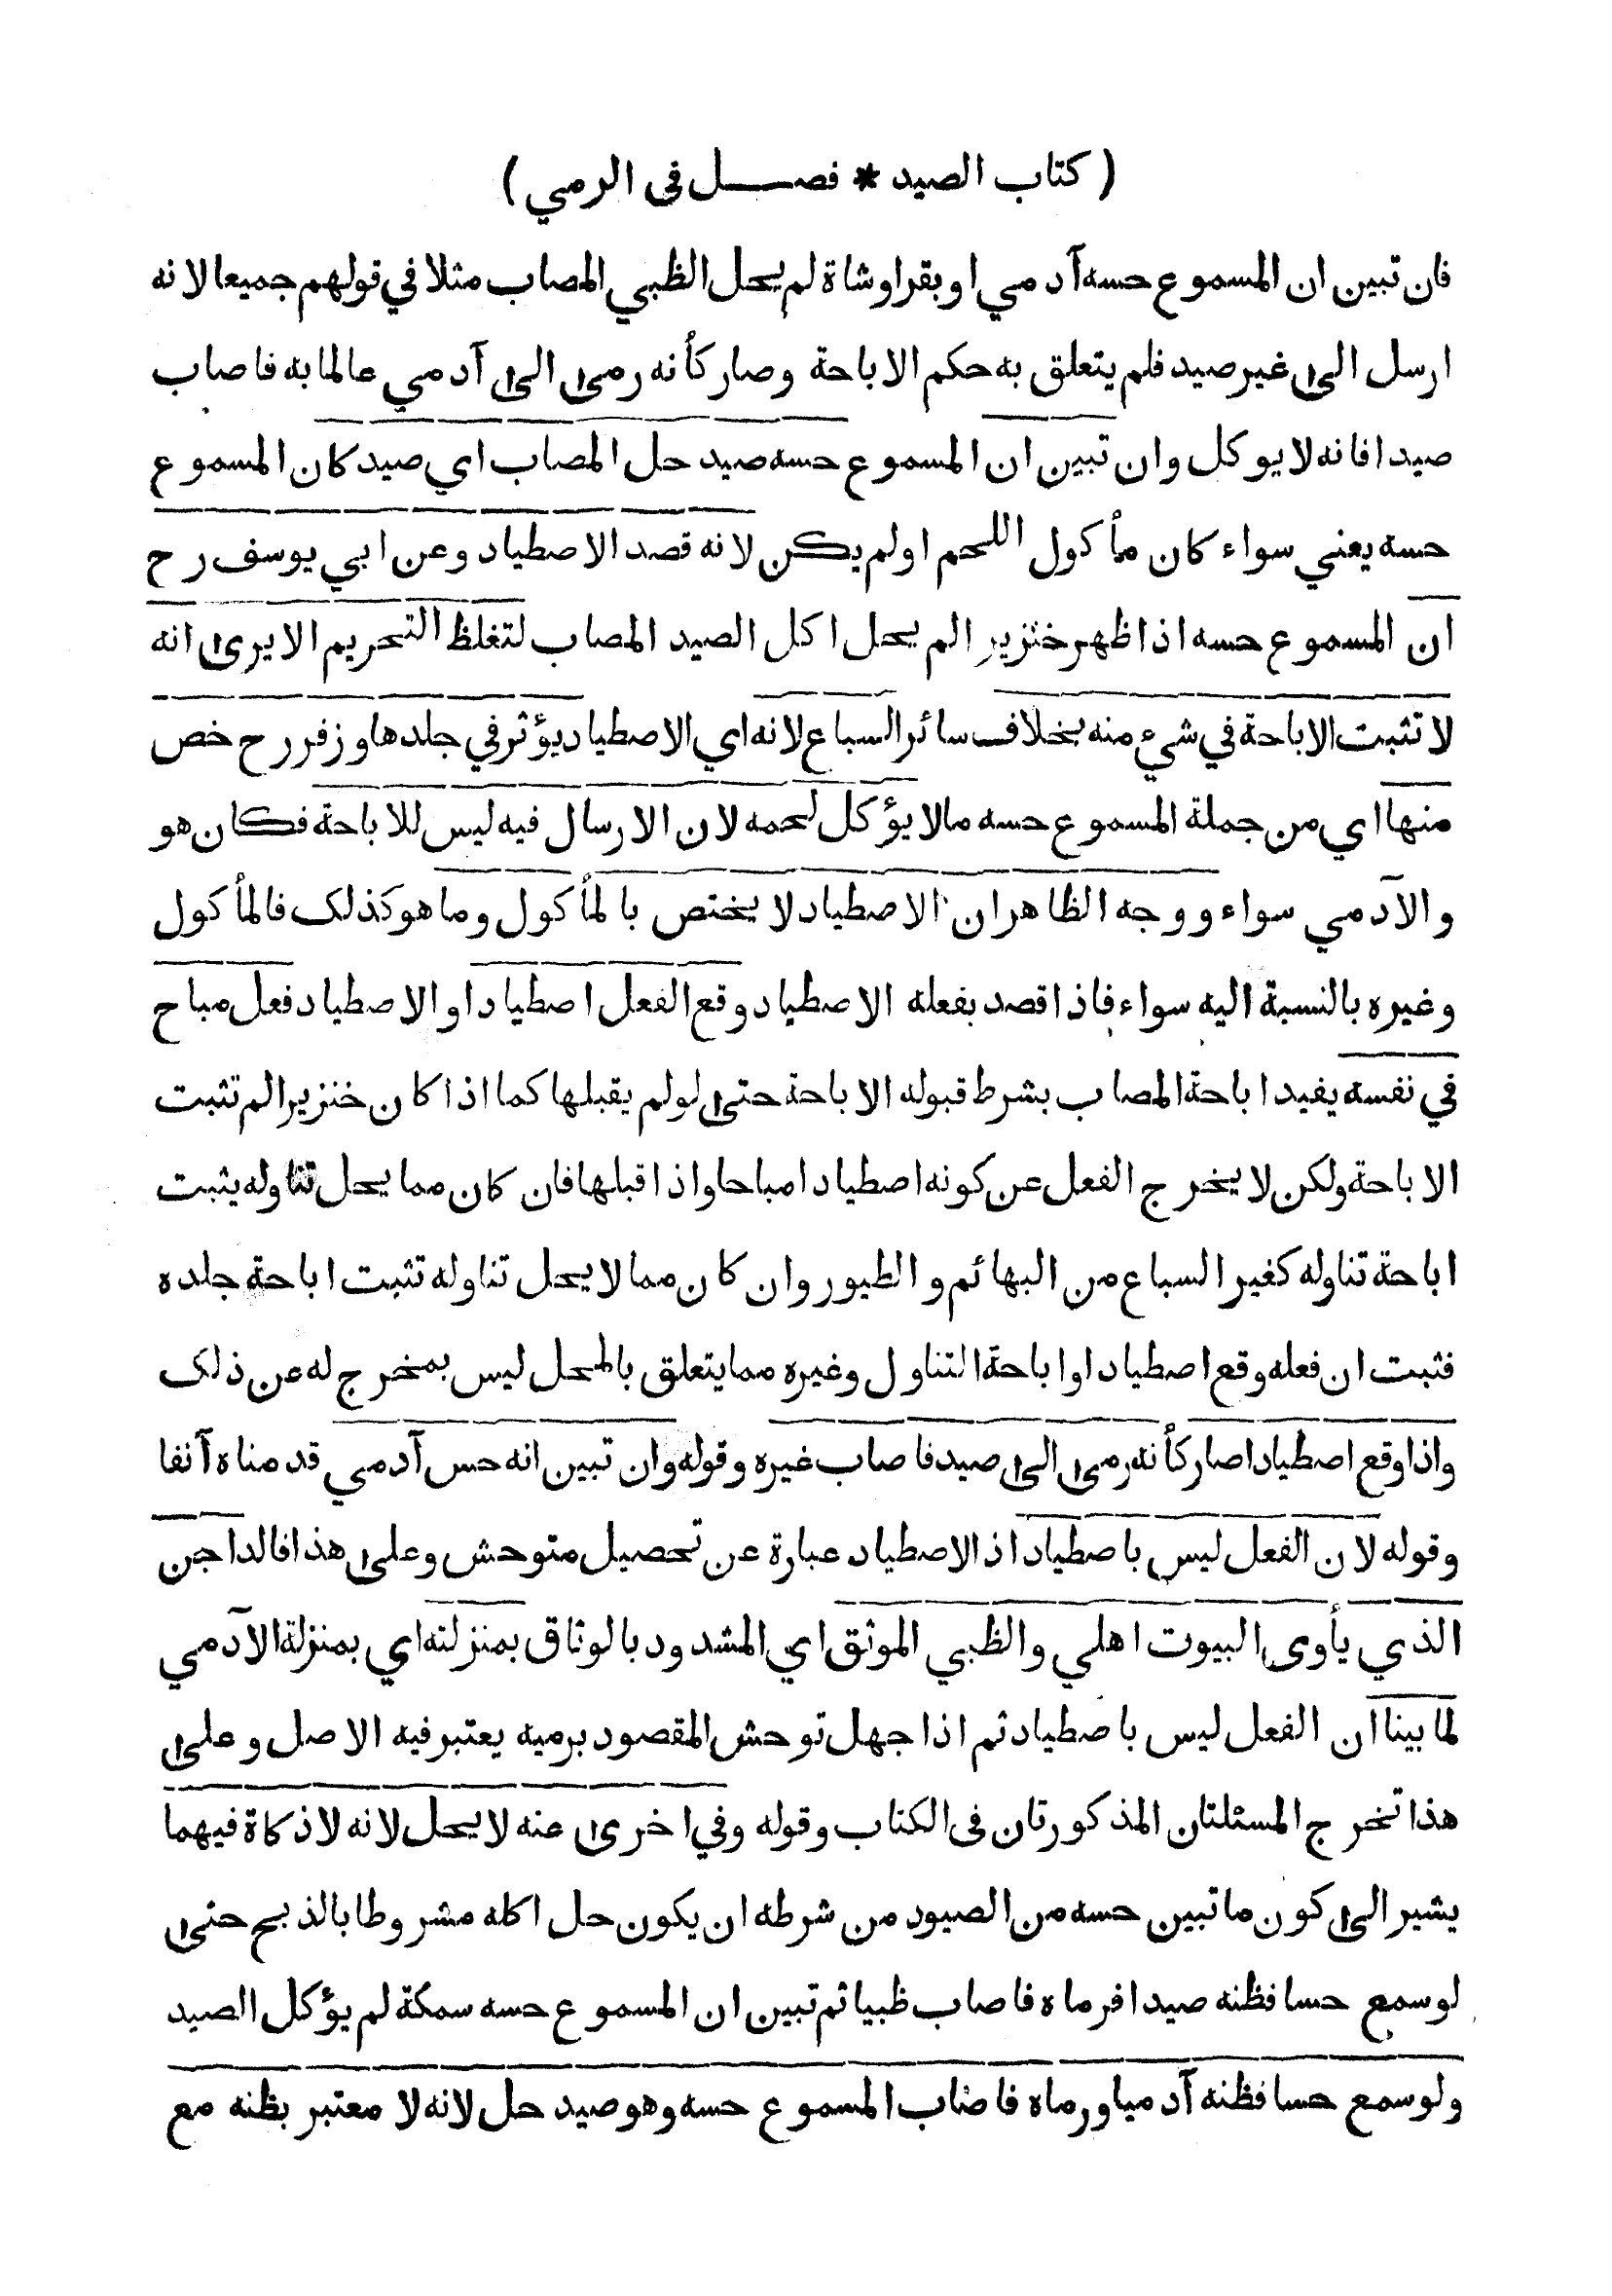 ( كتاب الصيد * فصل في الرمي )
فان تبين ان المسموع حسه آدمي او بقر او شاة لم يحل الظبي المصاب مثلا في قولهم جميعا لانه
ارسل الى غير صيد فلم يتعلق به حكم الاباحة وصار كأنه رمى الى آدمي عالما به فاصاب
صيدا فانه لا يوكل وان تبين ان المسموع حسه صيد حل المصاب اي صيد كان المسموع
حسه يعني سواء كان مأكول اللحم اولم يكن لانه قصد الاصطياد وعن ابي يوسف رح
ان المسموع حسه اذا ظهر خنزيرا لم يحل اكل الصيد المصاب لتغلظ التحريم الا يرى انه
لا تثبت الاباحة في شيء منه بخلاف سائر السباع لانه اي الاصطياد يؤثر في جلدها وزفر رح خص
منها اي من جملة المسموع حسه مالا يؤكل لحمه لان الارسال فيه ليس للاباحة فكان هو
والآدمي سواء ووجه الظاهر ان الاصطياد لا يختص بالمأكول وما هو كذلك فالمأكول
وغيره بالنسبة اليه سواء فاذا قصد بفعله الاصطياد وقع الفعل اصطيادا والاصطياد فعل مباح
في نفسه يفيد اباحة المصاب بشرط قبوله الاباحة حتى لولم يقبلها كما اذا كان خنزيرا لم تثبت
الاباحة ولكن لا يخرج الفعل عن كونه اصطيادا مباحا واذا قبلها فان كان مما يحل تناوله يثبت
اباحة تناوله كغير السباع من البهائم والطيور وان كان مما لا يحل تناوله تثبت اباحة جلده
فثبت ان فعله وقع اصطيادا واباحة التناول وغيره مما يتعلق بالمحل ليس بمخرج له عن ذلك
واذا وقع اصطيادا صار كأنه رمى الى صيد فاصاب غيره وقوله وان تبين انه حس آدمي قدمناه آنفا
وقوله لان الفعل ليس باصطياد اذ الاصطياد عبارة عن تحصيل متوحش وعلى هذا فالداجن
الذي يأوى البيوت اهلي والظبي الموثق اي المشدود بالوثاق بمنزلته اي بمنزلة الآدمي
لما بينا ان الفعل ليس باصطياد ثم اذا جهل توحش المقصود برميه يعتبر فيه الاصل وعلى
هذا تخرج المسئلتان المذكورتان في الكتاب وقوله وفي اخرى عنه لا يحل لانه لا ذكاة فيهما
يشير الى كون ما تبين حسه من الصيود من شرطه ان يكون حل اكله مشروطا بالذبح حتى
لو سمع حسا فظنه صيدا فرماه فاصاب ظبيا ثم تبين ان المسموع حسه سمكة لم يؤكل الصيد
ولو سمع حسا فظنه آدميا ورماه فاصاب المسموع حسه وهو صيد حل لانه لا معتبر بظنه مع